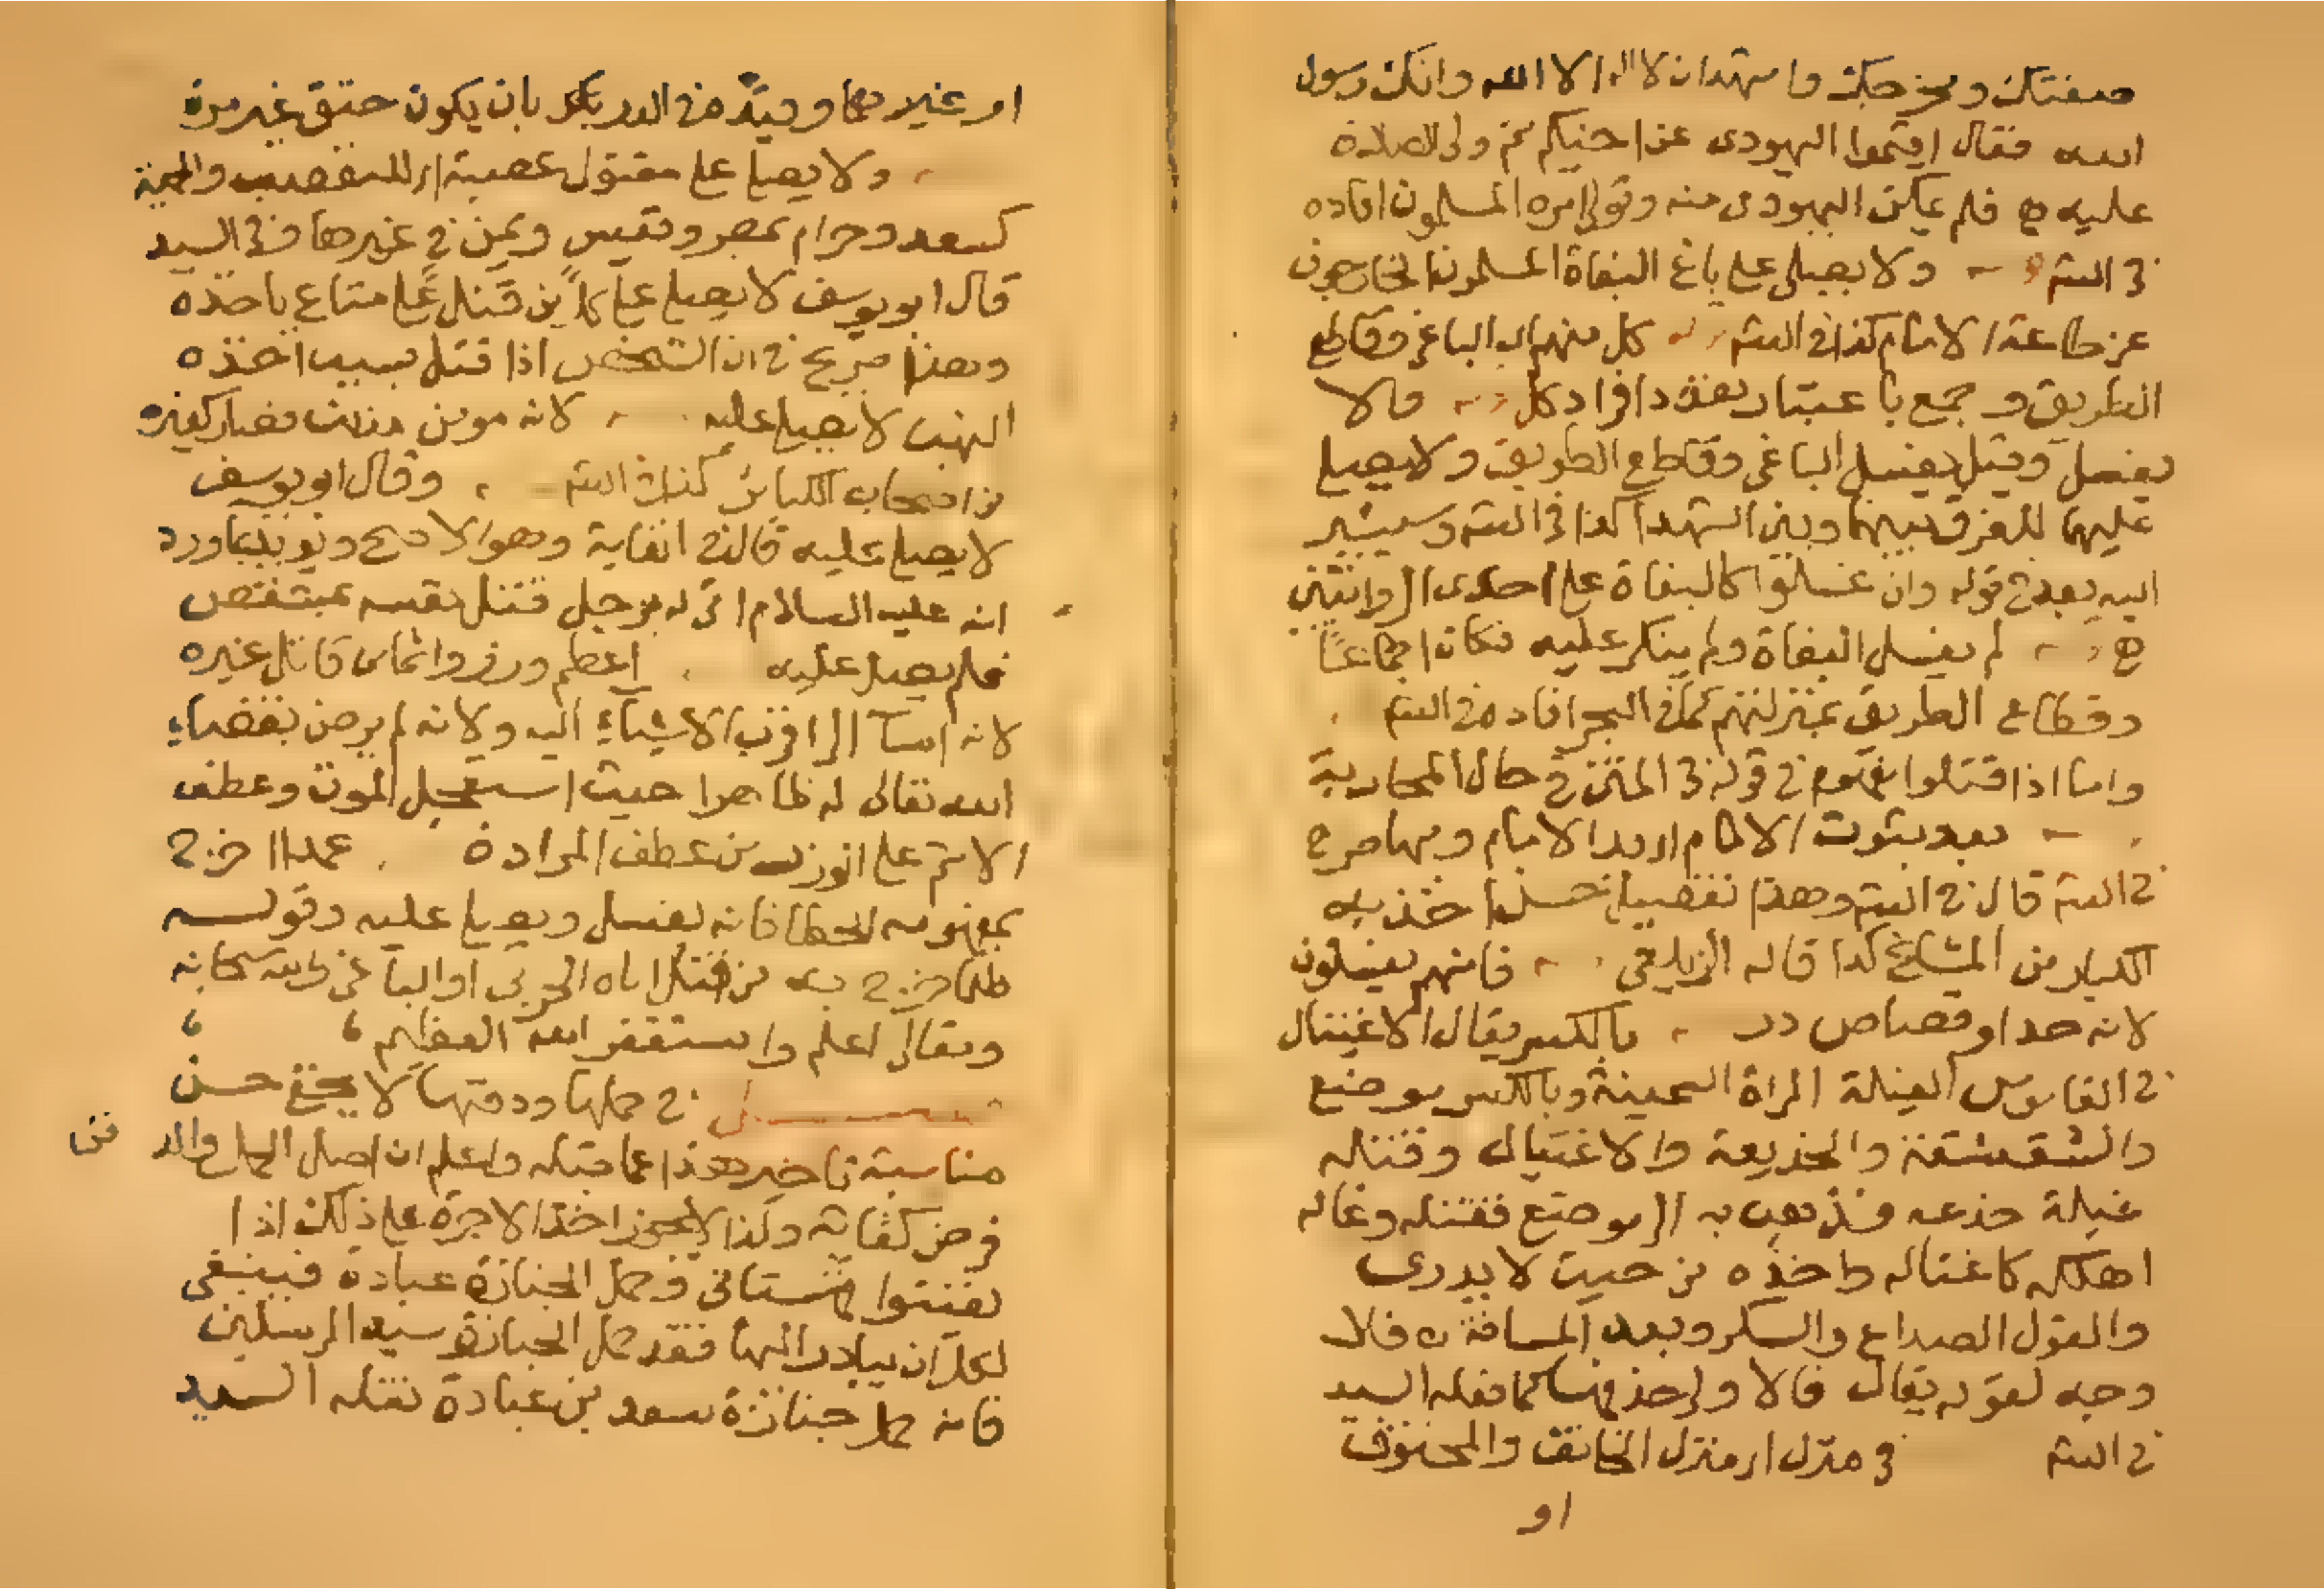 صفتك ومخرجك واشهد ان لا اله الا الله وانك رسول
الله فقال اقيموا اليهودى عن اخيكم ثم ولى الصلاة
عليه فلم يمكن اليهودى منه وتولى امره المسلمون افاده
فى الشر ولا يصلى على باغ البغاة المسلمون الخارجون
عن طاعة الامام كذا فى الشر كل منهم اى الباغى وقاطع
الطريق وجمع باعتبار افراد كل والا
يغسل وقيل يغسل الباغى وقاطع الطريق ولا يصلى
عليهما للفرق بينهما وبين الشهدا كذا فى الشر وسيشير
اليه بعد فى قوله وان غسلوا كالبغاة على احدى الروايتين
لم يغسل البغاة ولم ينكر عليه فكان اجماعا
وقطاع الطريق بمنزلتهم كذا فى البحر افاده فى الشر
واما اذا قتلوا مفهوم فى قوله فى المتن فى حال المحاربة
بعد ثبوت الامام يد الامام وبها صرح
فى الشر قال فى الشر وهذا تفصيل حسن اخذ به
الكبار من المشايخ كذا قاله الزيلعى فانهم يغسلون
لانه حد او قصاص در بالكسر يقال الاغتيال
فى القاموس الغيلة المراة السمينة وبالكسر موضع
والشقشقة والخديعة والاغتيال وقتله
غيلة خدعه فذهب به الى موضع فقتله وغاله
اهلكه كاغتاله واخذه من حيث لا يدرى
والغول الصداع والسكر وبعد المسافة فلا
وجه لقوله يقال فالاولى حذفها كما فعله السيد
فى الشر فى منزل اى منزل الخانق والمخنوق
او
او غيرهما وقيده فى الدر بان يكون خنق غير مرة
ولا يصلى على مقتول عصبية اى للتعصب والحمية
كسعد وحرام بمصر وقيس ويمن فى غيرها وفى السيد
قال ابو يوسف لا يصلى على كل من قتل على متاع ياخذه
وهذا صريح فى ان الشخص اذا قتل بسبب اخذه
النهب لا يصلى عليه لانه مومن مذنب فصار كغيره
من اصحاب الكبائر كذا فى الشر وقال ابو يوسف
لا يصلى عليه قال فى الغاية وهو الاصح ويويده ما ورد
انه عليه السلام اتى له برجل قتل نفسه بمشقص
فلم يصل عليه اعظم وزرا واثما من قاتل غيره
لانه اساء الى اقرب الاشياء اليه ولانه لم يرض بقضاء
الله تعالى له ظاهرا حيث استعجل الموت وعطف
الاثم على الوزر من عطف المرادف عمدا اخرج
بمفهومه الخطا فانه يغسل ويصلى عليه وقوله
ظلما خرج به من قتل اباه الحربى او الباغى والله سبحانه
وتعالى اعلم واستغفر الله العظيم
فصل فى حملها ودفنها لا يخفى حسن
مناسبة تاخير هذا عما قبله واعلم ان اصل الحمل والد فن
فرض كفاية وكذا لا يجوز اخذ الاجرة على ذلك اذا
تعينوا قهستانى وحمل الجنازة عبادة فينبغى
لكل ان يبادر اليها فقد حمل الجنازة سيد المرسلين
فانه حمل جنازة سعد بن عبادة نقله السيد